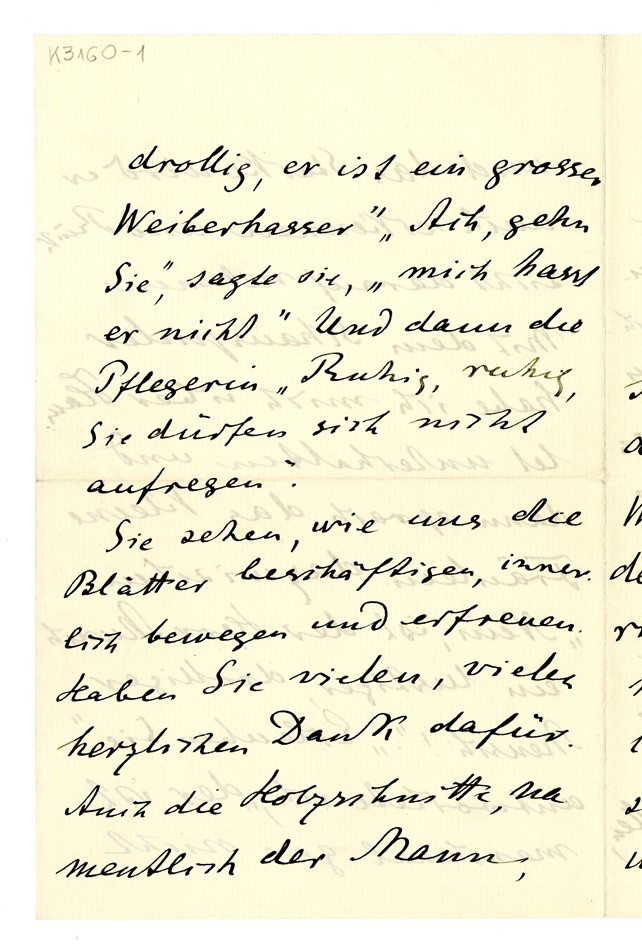 K3160-1
drollig, er ist ein grosser
Weiberhasser" „Ach, gehn
Sie", sagte sie, „mich hasst
er nicht" Und dann die
Pflegerin „Ruhig, ruhig,
Sie dürfen sich nicht
aufregen".
Sie sehen, wie uns die
Blätter beschäftigen, inner-
lich bewegen und erfreuen.
Haben Sie vielen, vielen
herzlichen Dank dafür.
Auch die Holzschnitte, na
mentlich der Mann,